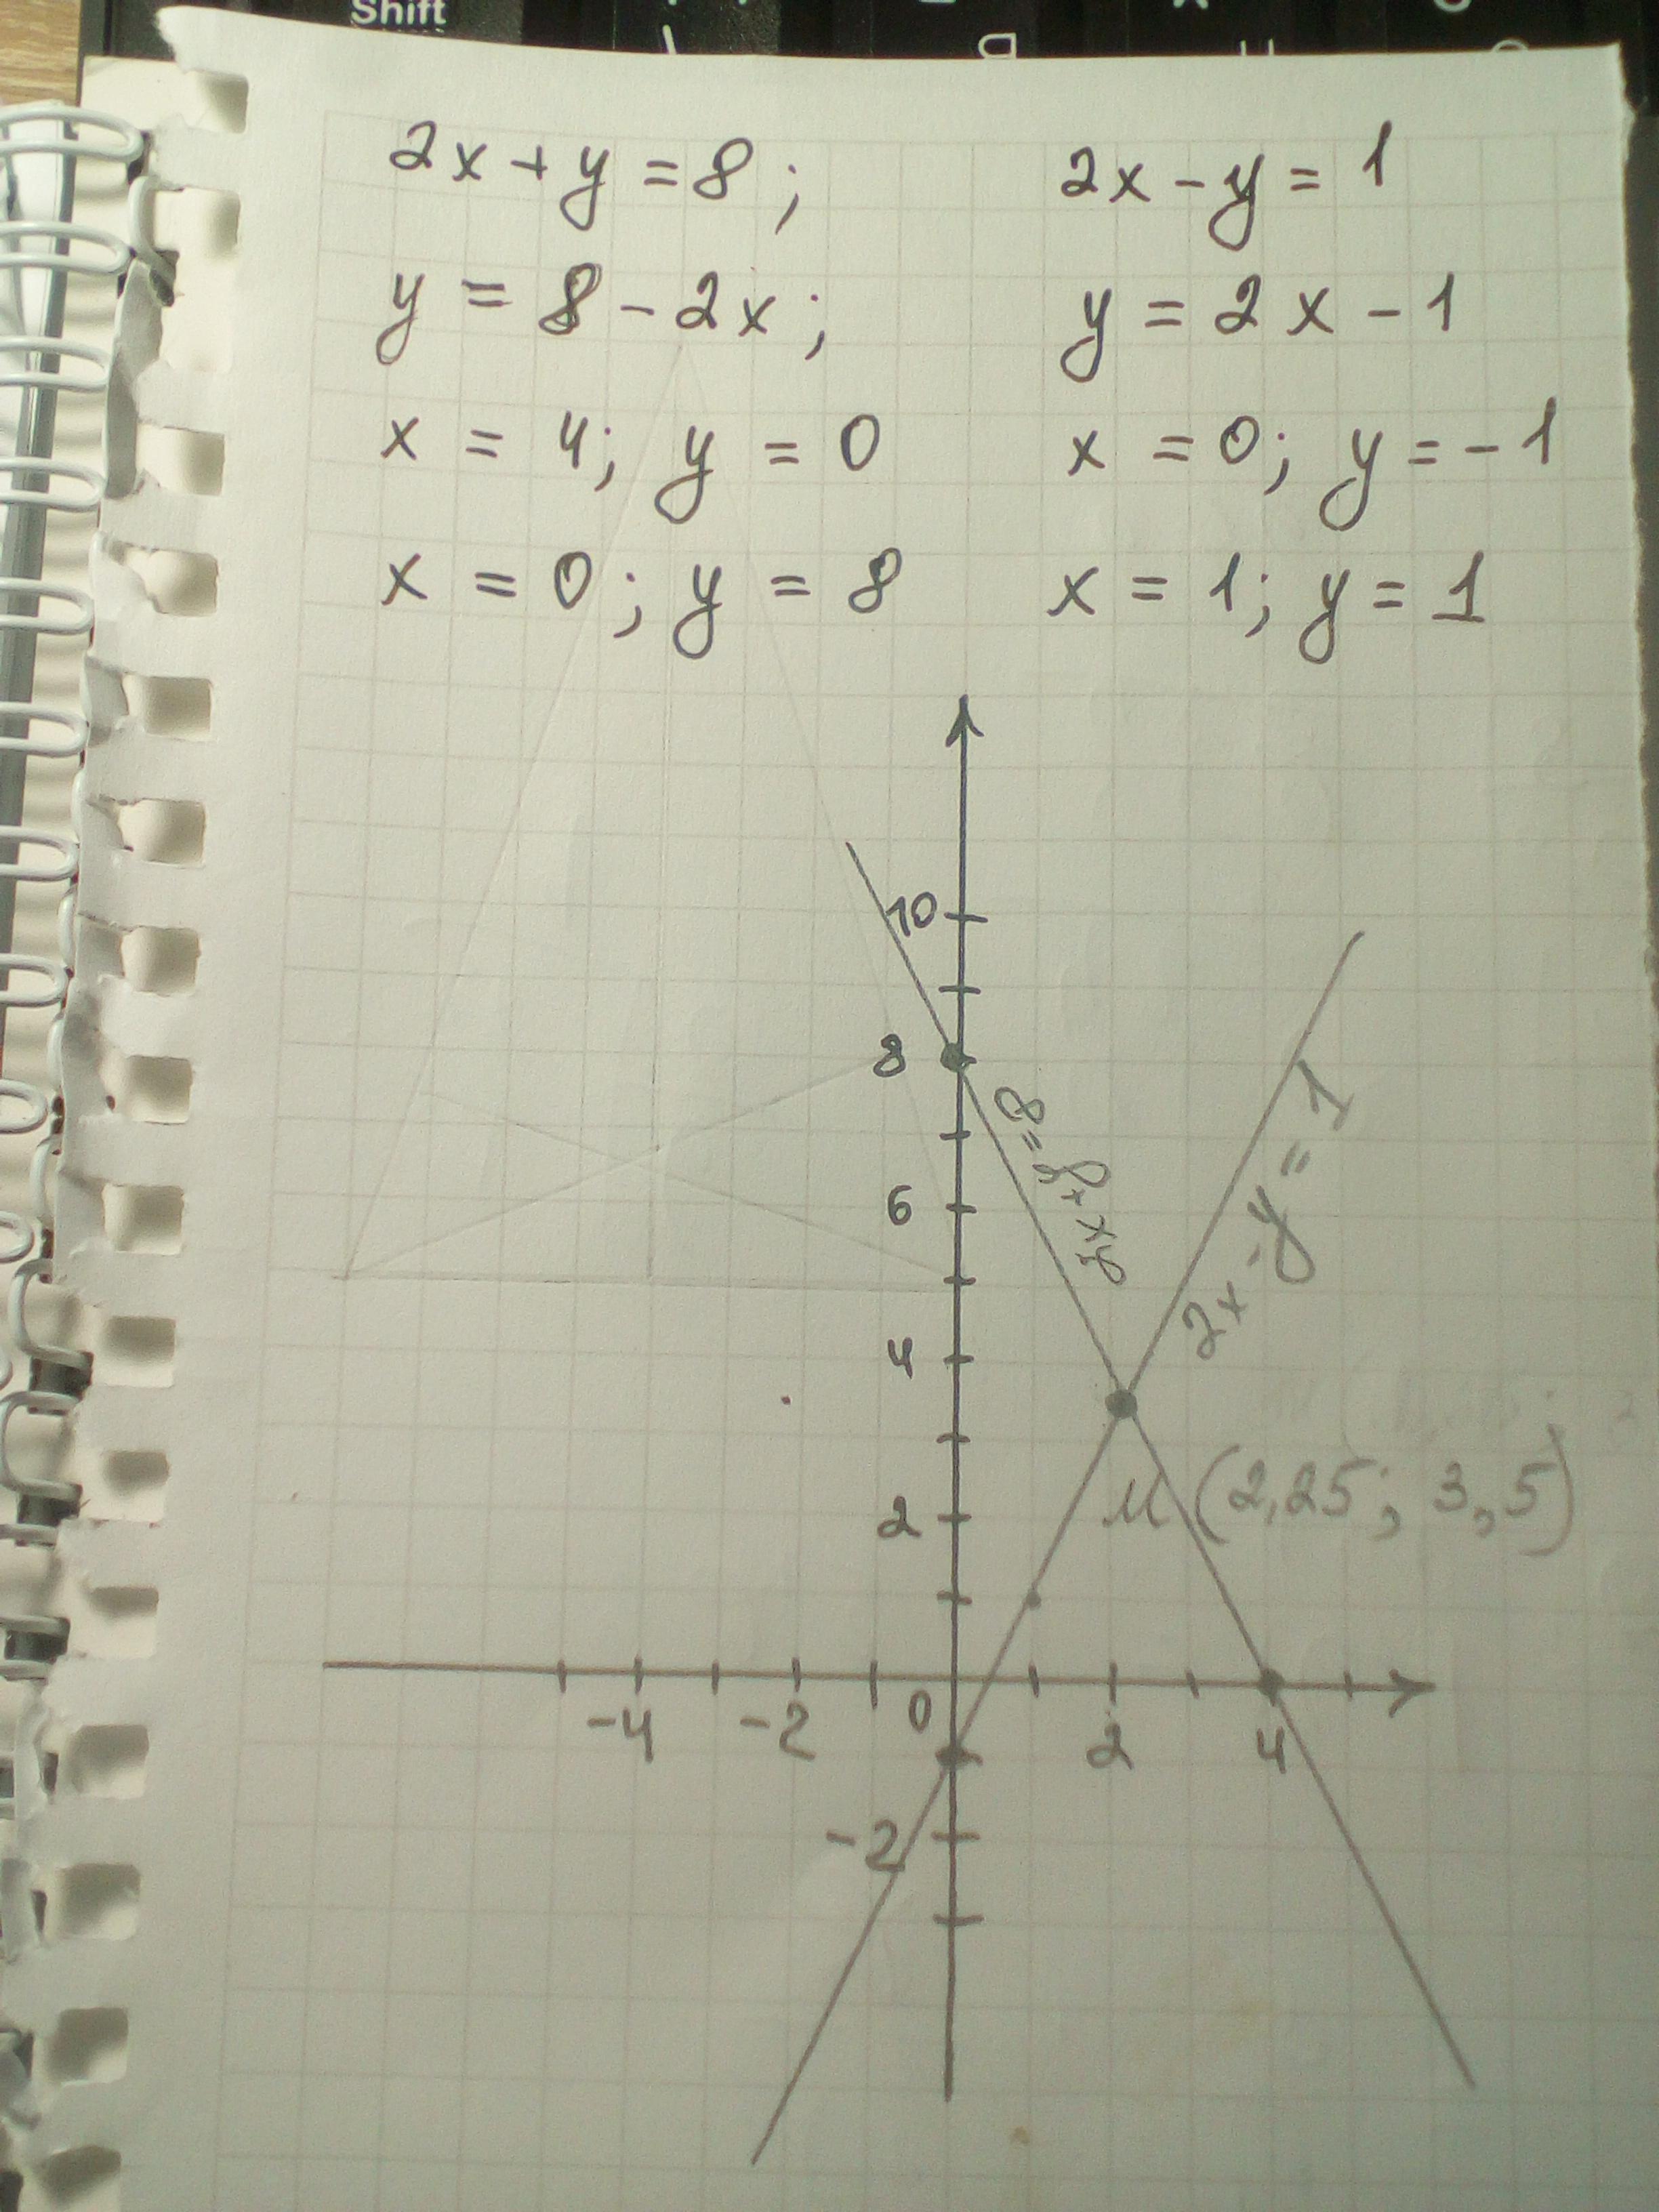 Shift
2x + y = 8; 2x - y = 1
y = 8 - 2x; y = 2x - 1
x = 4; y = 0 x = 0; y = -1
x = 0; y = 8 x = 1; y = 1
10
8
2x + y = 8
2x - y = 1
6
4
M (2,25; 3,5)
2
-4 -2 0 2 4
-2